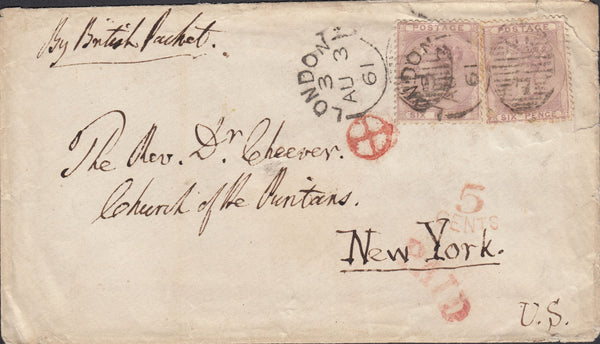 By British Packet.
POSTAGE
POSTAGE
SIX
SIX PENCE
LONDON
3
AU 3
61
LONDON
3
61
The Rev. Dr Cheever.
Church of the Puritans.
5
CENTS
New York.
PAID
U.S.